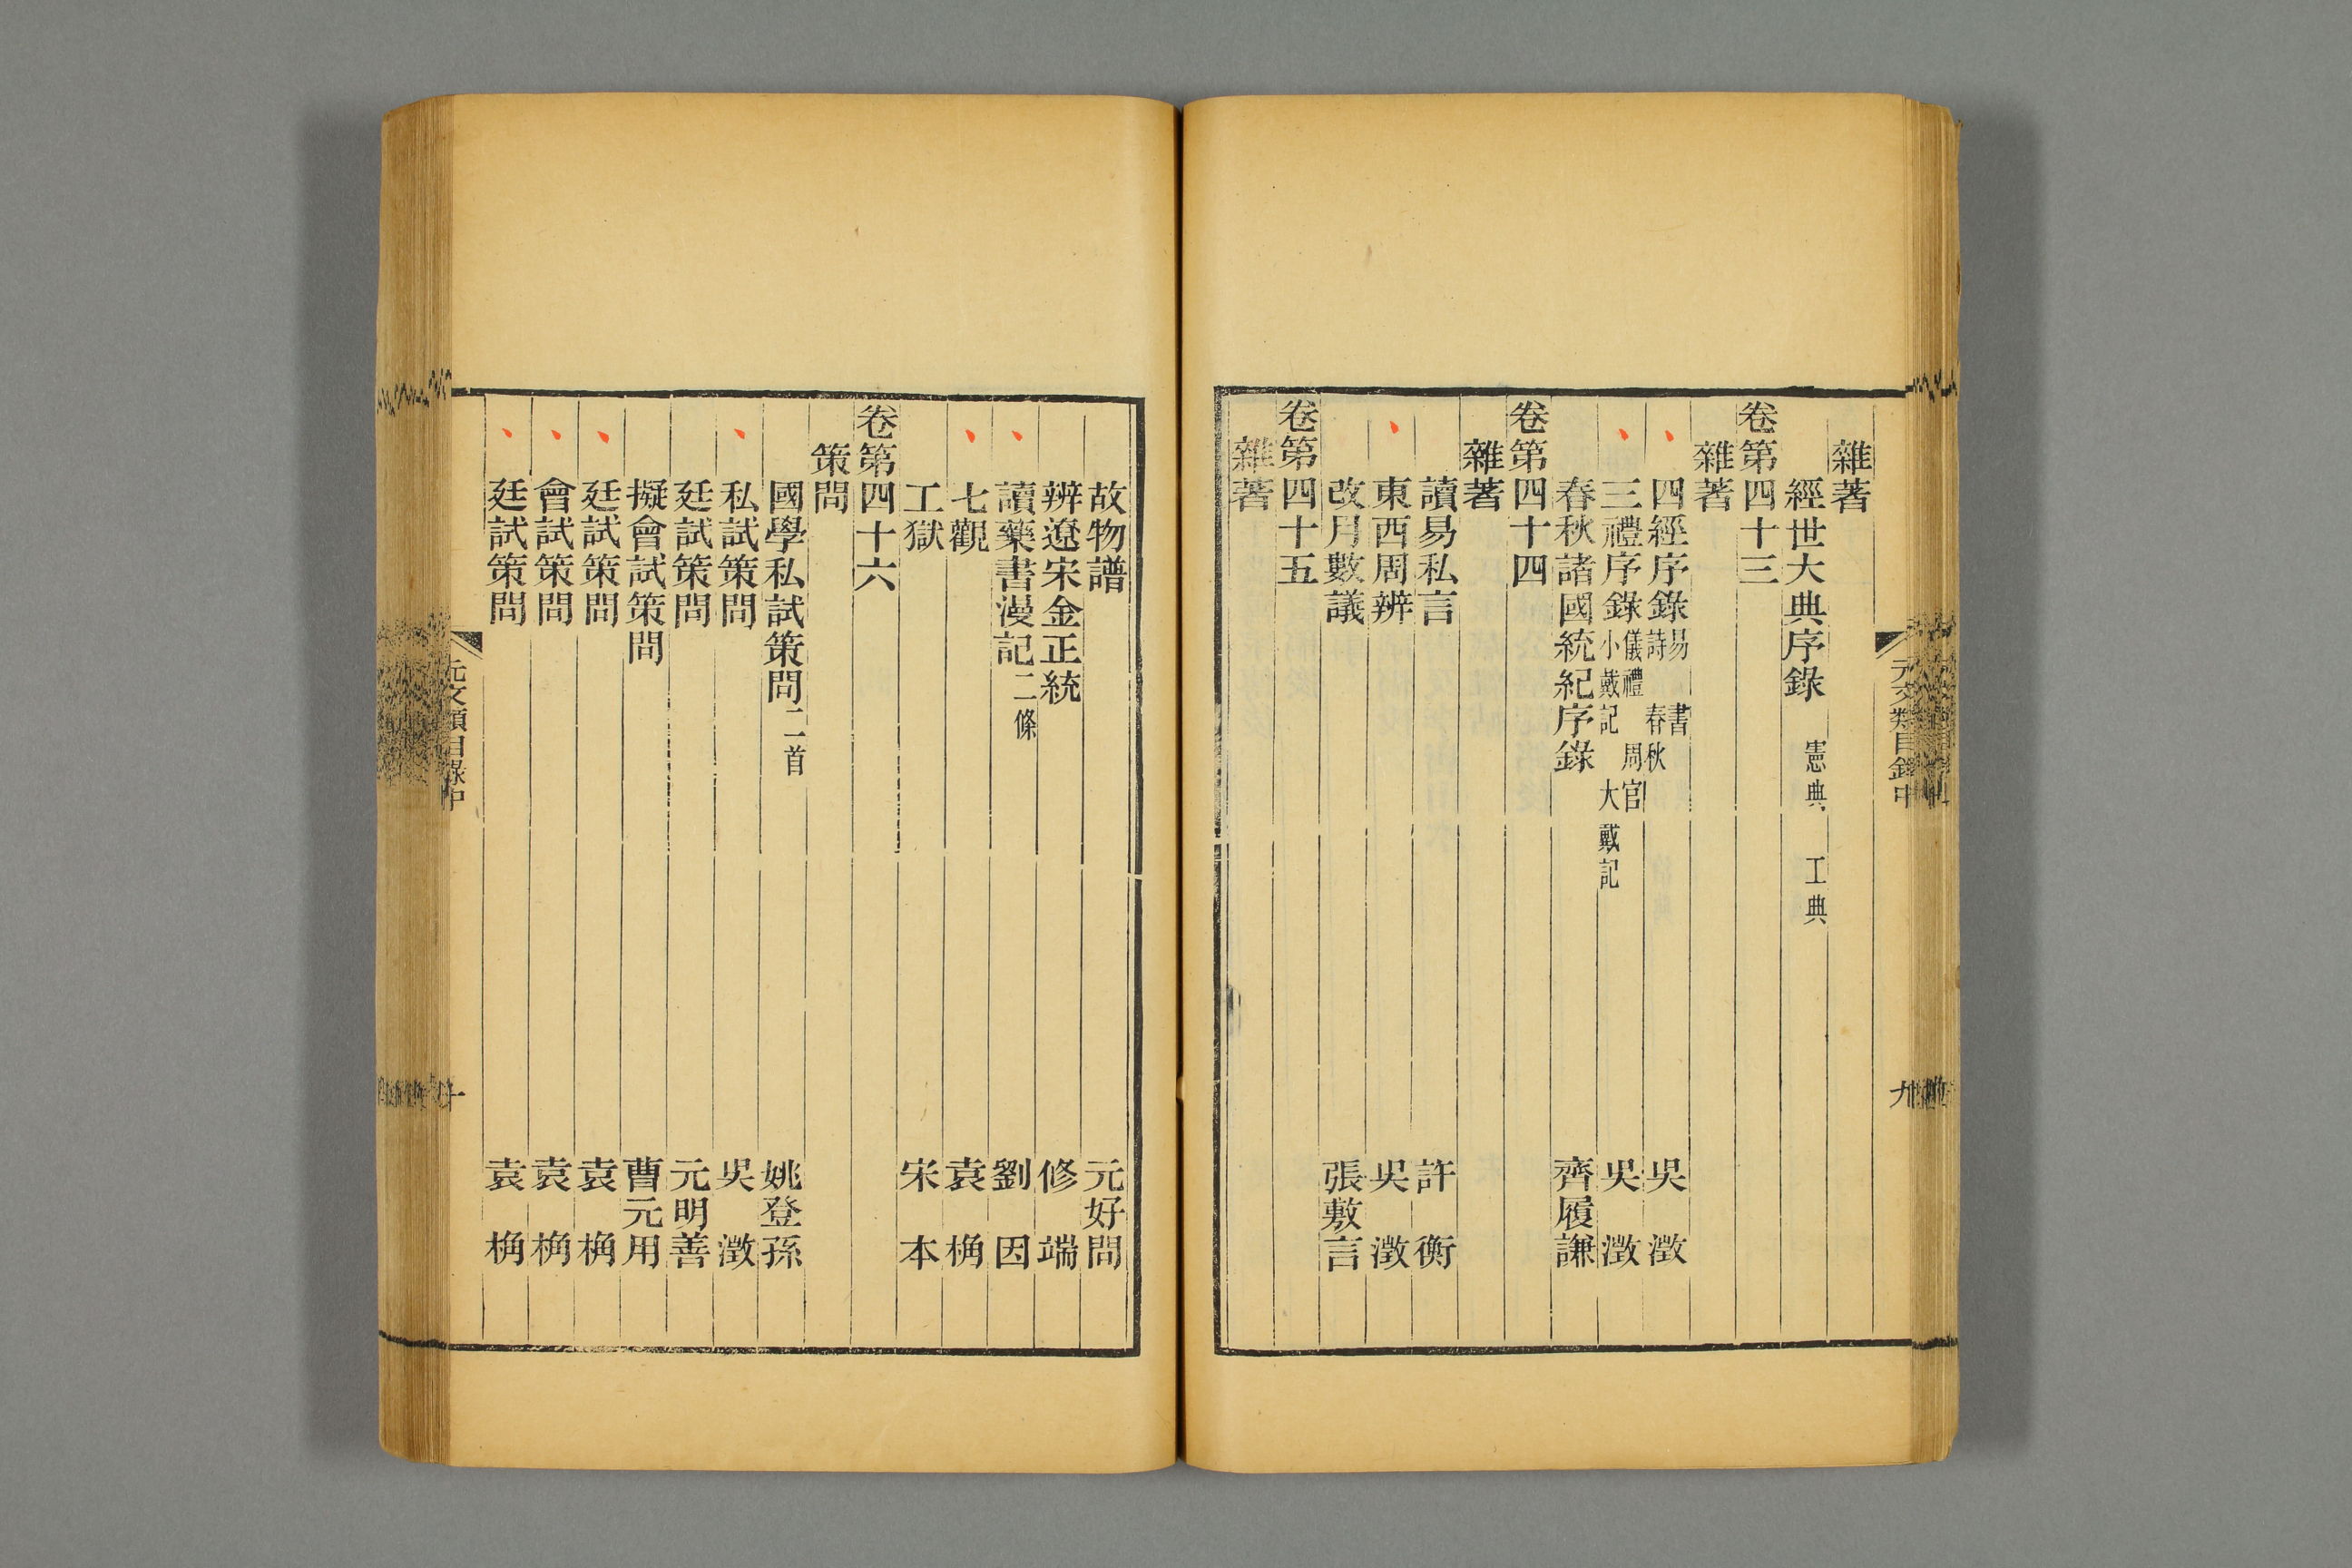 雜著
經世大典序錄 憲典 工典
卷第四十三
雜著
四經序錄 易 書 詩 春秋 吳澂
三禮序錄 儀禮 周官 小戴記 大戴記 吳澂
春秋諸國統紀序錄 齊履謙
卷第四十四
雜著
讀易私言 許衡
東西周辨 吳澂
改月數議 張敷言
卷第四十五
雜著
元文類目錄中
九
故物譜 元好問
辨遼宋金正統 修端
讀藥書漫記 二條 劉因
七觀 袁桷
工獄 宋本
卷第四十六
策問
國學私試策問 二首 姚登孫
私試策問 吳澂
廷試策問 元明善
擬會試策問 曹元用
廷試策問 袁桷
會試策問 袁桷
廷試策問 袁桷
元文類目錄中